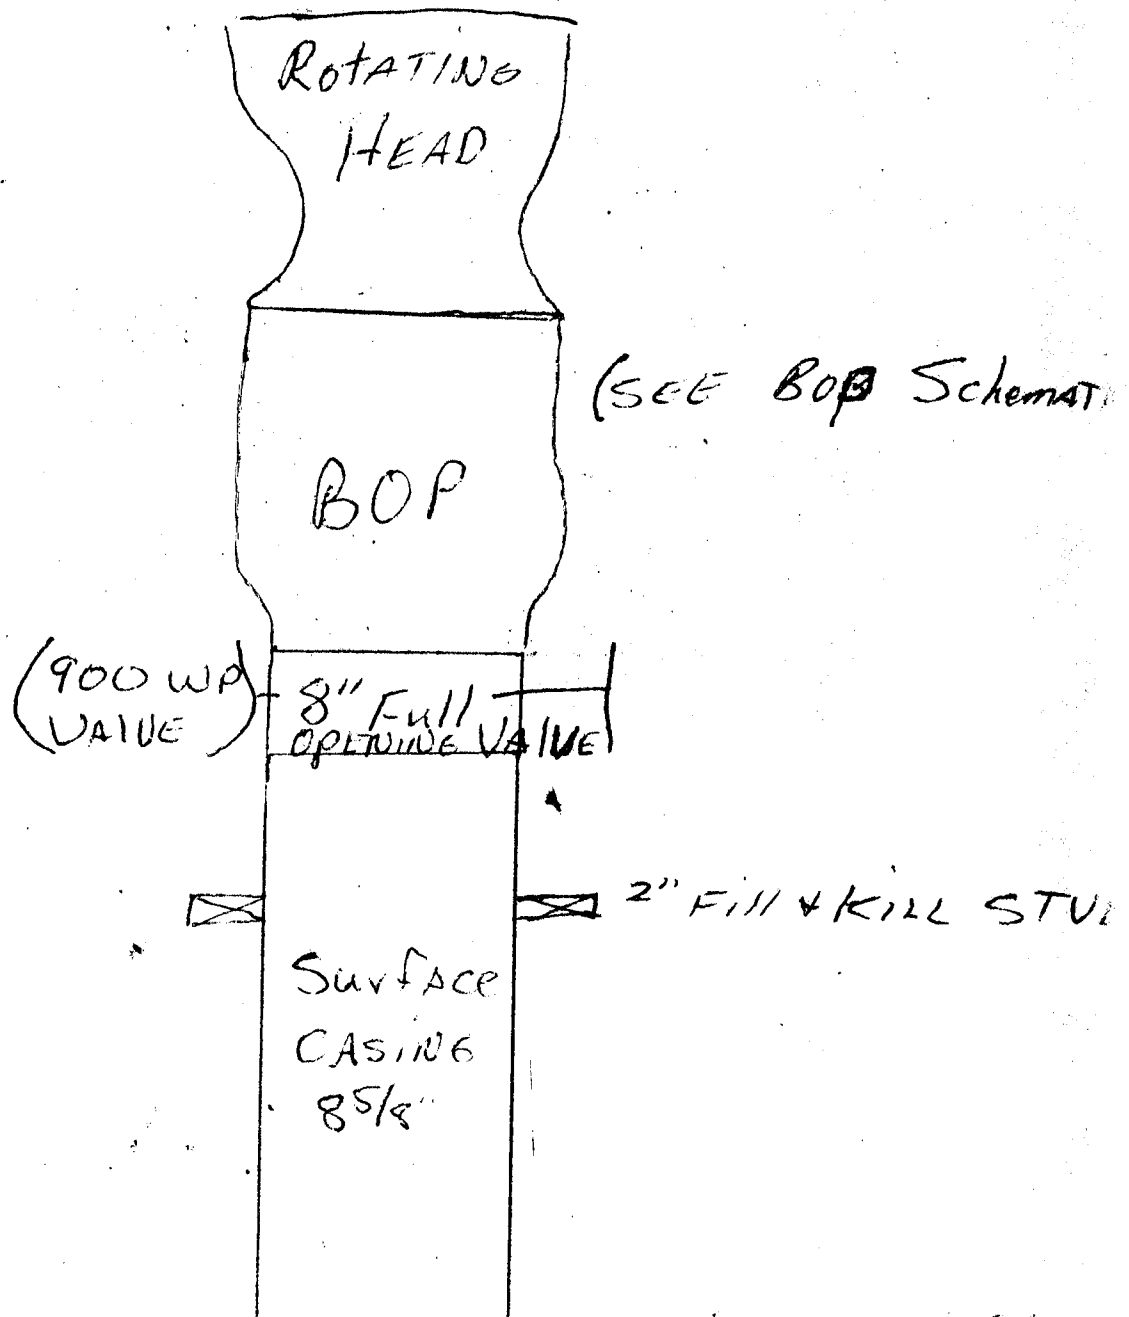 ROTATING
HEAD
(SEE BOP SchemAT
BOP
(900 WP
VALVE)
8" Full
OPENING VALVE
2" Fill & Kill STU
Surface
CASING
8 5/8"